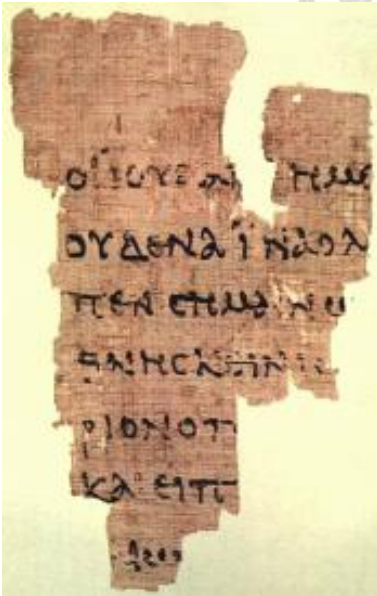 ΟΙΪΟΥΔΑΙ ΗΜΕ
ΟΥΔΕΝΑΪΝΑΟΛ
ΠΕΝCΗΜΑΙΝΩ
ΘΝΗCΚΕΙΝΙC
ΡΙΟΝΟΠ
ΚΑΙΕΙΠ